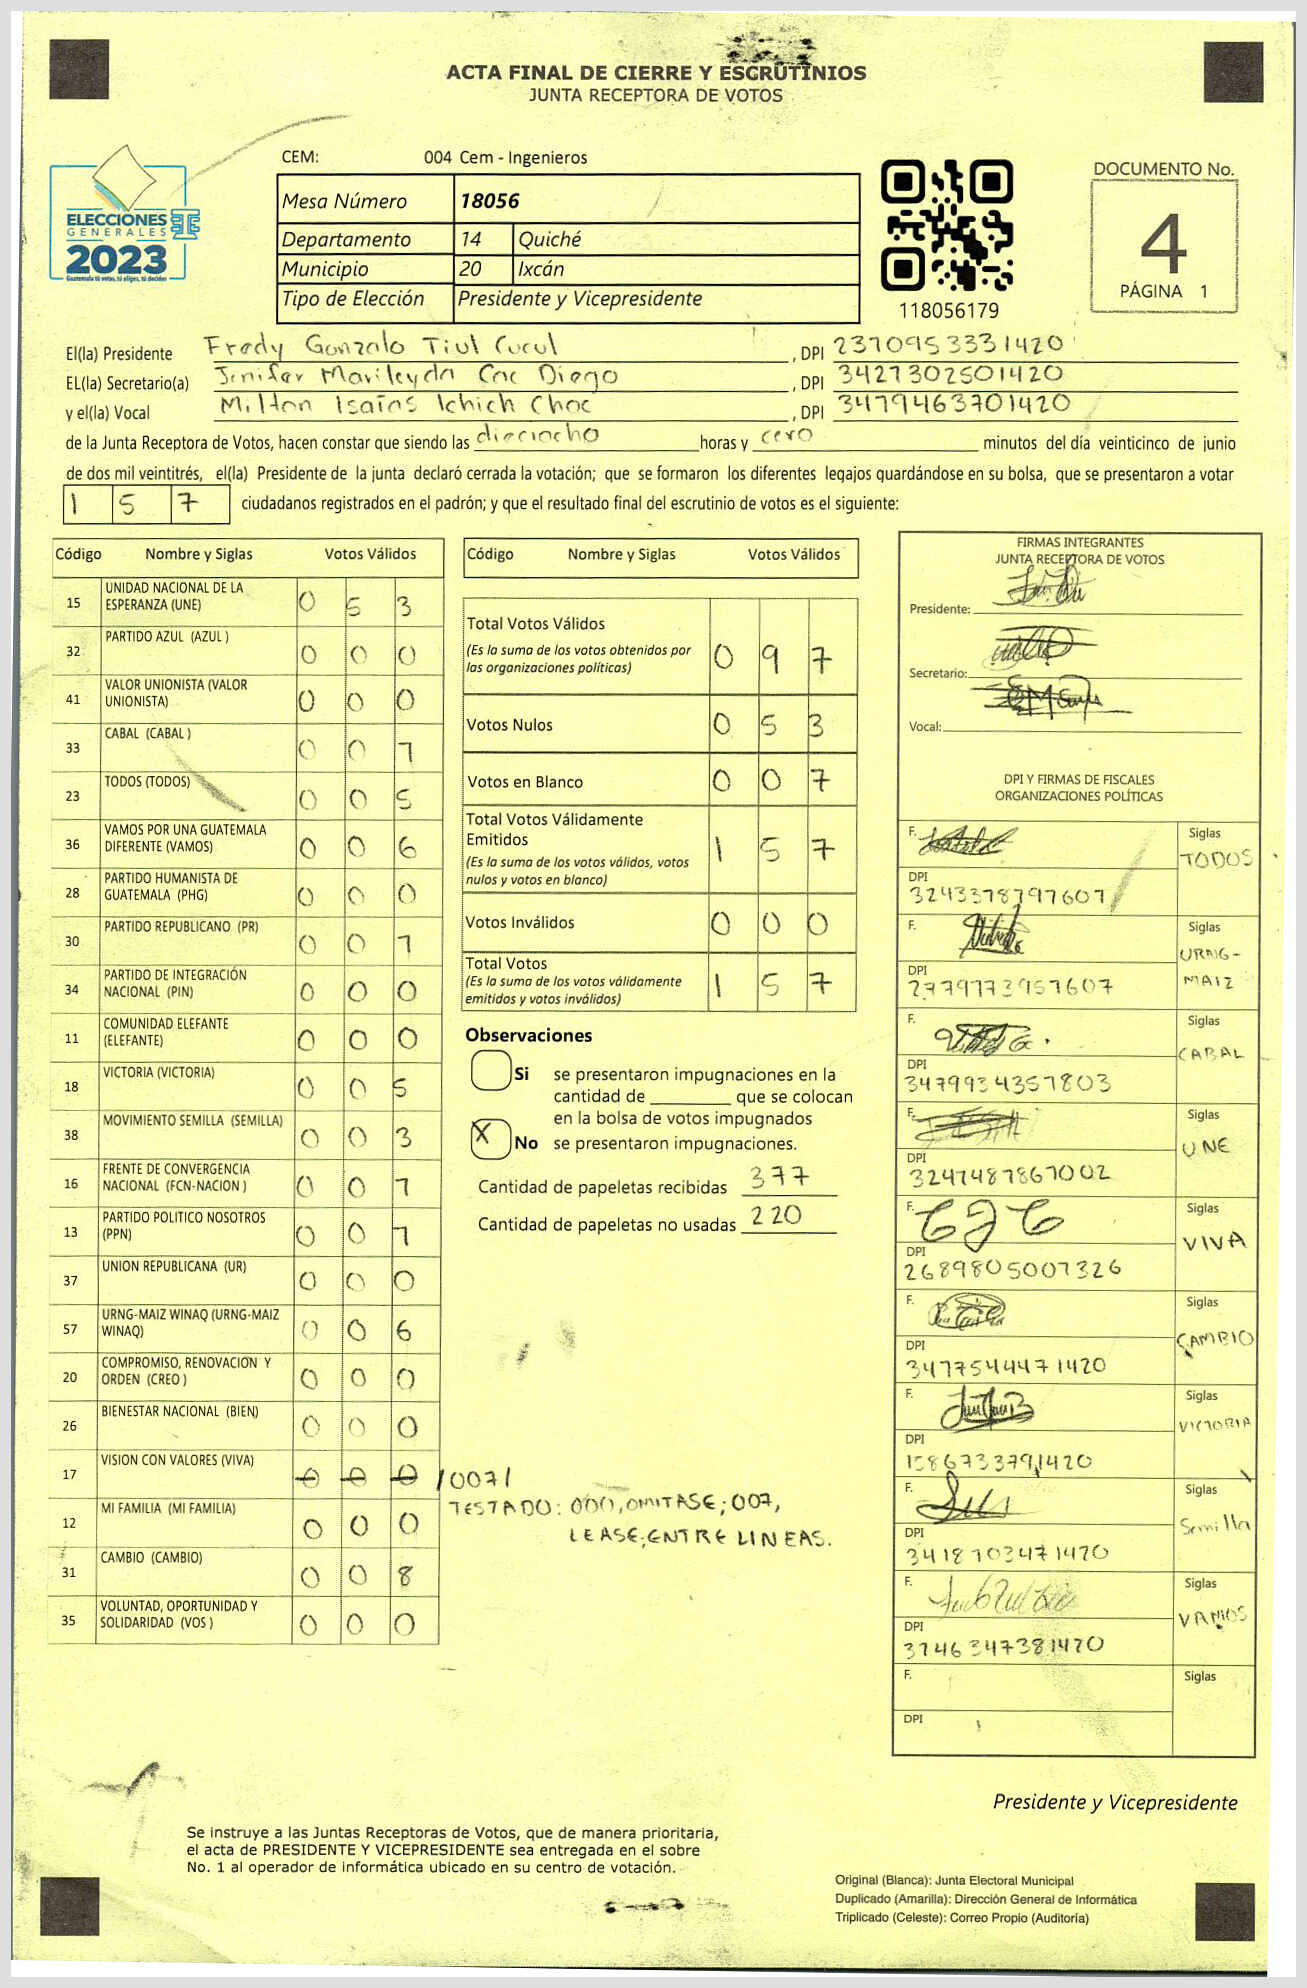 ACTA FINAL DE CIERRE Y ESCRUTINIOS
JUNTA RECEPTORA DE VOTOS
ELECCIONES
GENERALES
2023
Guatemala tú votas, tú eliges, tú decides
CEM: 004 Cem - Ingenieros
Mesa Número 18056
Departamento 14 Quiché
Municipio 20 Ixcán
Tipo de Elección Presidente y Vicepresidente
118056179
DOCUMENTO No.
4
PÁGINA 1
El(la) Presidente Fredy Gonzalo Tiul Cucul, DPI 2370953331420
EL(la) Secretario(a) Jenifer Marileyda Coc Diego, DPI 3427302501420
y el(la) Vocal Milton Isaías Ichich Choc, DPI 3479463701420
de la Junta Receptora de Votos, hacen constar que siendo las dieciocho horas y cero minutos del día veinticinco de junio
de dos mil veintitrés, el(la) Presidente de la junta declaró cerrada la votación; que se formaron los diferentes legajos quardándose en su bolsa, que se presentaron a votar
1 5 7 ciudadanos registrados en el padrón; y que el resultado final del escrutinio de votos es el siguiente:
Código Nombre y Siglas Votos Válidos
15 UNIDAD NACIONAL DE LA ESPERANZA (UNE) 0 5 3
32 PARTIDO AZUL (AZUL ) 0 0 0
41 VALOR UNIONISTA (VALOR UNIONISTA) 0 0 0
33 CABAL (CABAL ) 0 0 1
23 TODOS (TODOS) 0 0 5
36 VAMOS POR UNA GUATEMALA DIFERENTE (VAMOS) 0 0 6
28 PARTIDO HUMANISTA DE GUATEMALA (PHG) 0 0 0
30 PARTIDO REPUBLICANO (PR) 0 0 1
34 PARTIDO DE INTEGRACIÓN NACIONAL (PIN) 0 0 0
11 COMUNIDAD ELEFANTE (ELEFANTE) 0 0 0
18 VICTORIA (VICTORIA) 0 0 5
38 MOVIMIENTO SEMILLA (SEMILLA) 0 0 3
16 FRENTE DE CONVERGENCIA NACIONAL (FCN-NACION ) 0 0 1
13 PARTIDO POLITICO NOSOTROS (PPN) 0 0 1
37 UNION REPUBLICANA (UR) 0 0 0
57 URNG-MAIZ WINAQ (URNG-MAIZ WINAQ) 0 0 6
20 COMPROMISO, RENOVACION Y ORDEN (CREO ) 0 0 0
26 BIENESTAR NACIONAL (BIEN) 0 0 0
17 VISION CON VALORES (VIVA) 0 0 0 /007/
12 MI FAMILIA (MI FAMILIA) 0 0 0
31 CAMBIO (CAMBIO) 0 0 8
35 VOLUNTAD, OPORTUNIDAD Y SOLIDARIDAD (VOS ) 0 0 0
TESTADO: 000, OMITASE; 007,
LEASE; ENTRE LINEAS.
Código Nombre y Siglas Votos Válidos
Total Votos Válidos
(Es la suma de los votos obtenidos por las organizaciones políticas) 0 9 7
Votos Nulos 0 5 3
Votos en Blanco 0 0 7
Total Votos Válidamente Emitidos
(Es la suma de los votos válidos, votos nulos y votos en blanco) 1 5 7
Votos Inválidos 0 0 0
Total Votos
(Es la suma de los votos válidamente emitidos y votos inválidos) 1 5 7
Observaciones
Si se presentaron impugnaciones en la
cantidad de ________ que se colocan
en la bolsa de votos impugnados
X No se presentaron impugnaciones.
Cantidad de papeletas recibidas 377
Cantidad de papeletas no usadas 220
FIRMAS INTEGRANTES
JUNTA RECEPTORA DE VOTOS
Presidente:
Secretario:
Vocal:
DPI Y FIRMAS DE FISCALES
ORGANIZACIONES POLÍTICAS
F. Siglas TODOS
DPI 3243378797607
F. Siglas URNG-MAIZ
DPI 2779773957607
F. Siglas CABAL
DPI 3479934357803
F. Siglas UNE
DPI 3247487867002
F. Siglas VIVA
DPI 2689805007326
F. Siglas CAMBIO
DPI 3477544471420
F. Siglas VICTORIA
DPI 1586733791420
F. Siglas Semilla
DPI 3418703471420
F. Siglas VAMOS
DPI 3746347381420
F. Siglas
DPI
Presidente y Vicepresidente
Se instruye a las Juntas Receptoras de Votos, que de manera prioritaria,
el acta de PRESIDENTE Y VICEPRESIDENTE sea entregada en el sobre
No. 1 al operador de informática ubicado en su centro de votación.
Original (Blanca): Junta Electoral Municipal
Duplicado (Amarilla): Dirección General de Informática
Triplicado (Celeste): Correo Propio (Auditoría)